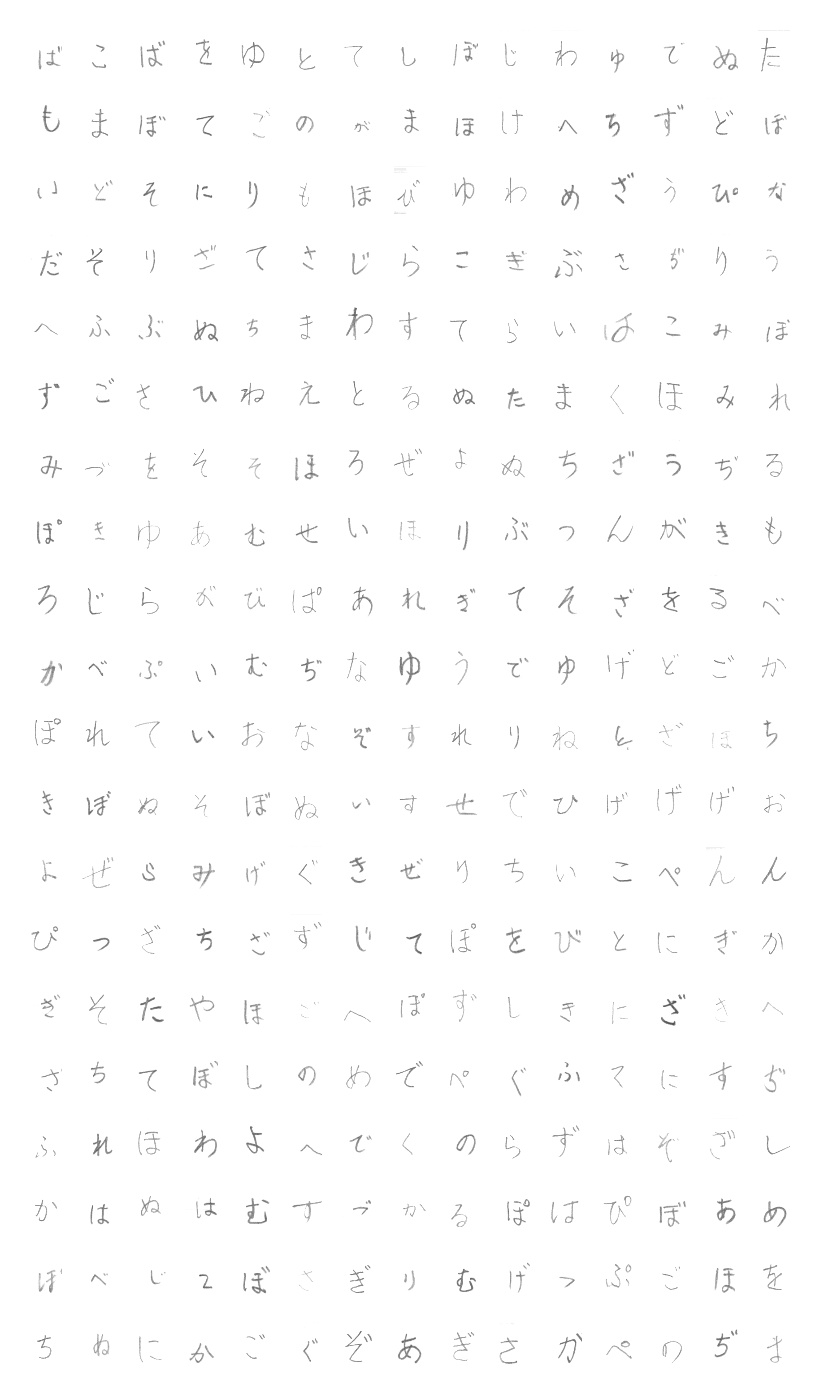 ばこばをゆとてしぼじわゅでぬた
もまぼてごのがまほけへちずどぼ
いどそにりもほびゆわめざうぴな
だそりざてさじらこぎぶさぢりう
へふぶぬちまわすてらいはこみぼ
ずごさひねえとるぬたまくほみれ
みづをそそほろぜよぬちざうぢる
ぽきゆあむせいほりぶつんがきも
ろじらがびぱあれぎてそざをるべ
かべぷいむぢなゆうでゆげどごか
ぽれていおなぞすれりねとざほち
きぼぬそぼぬいすせでひげげげお
よぜらみげぐきぜりちいこぺんん
ぴっざちざずじてぽをびとにぎか
ぎそたやほごへぽずしきにざきへ
さちてぼしのめでぺぐふてにすぢ
ふれほわよへでくのらずはぞざし
かはぬはむすづかるぽはぴぼあめ
ぼべじてぼさぎりむげつぷごほを
ちぬにかごぐぞあぎさかぺのぢま